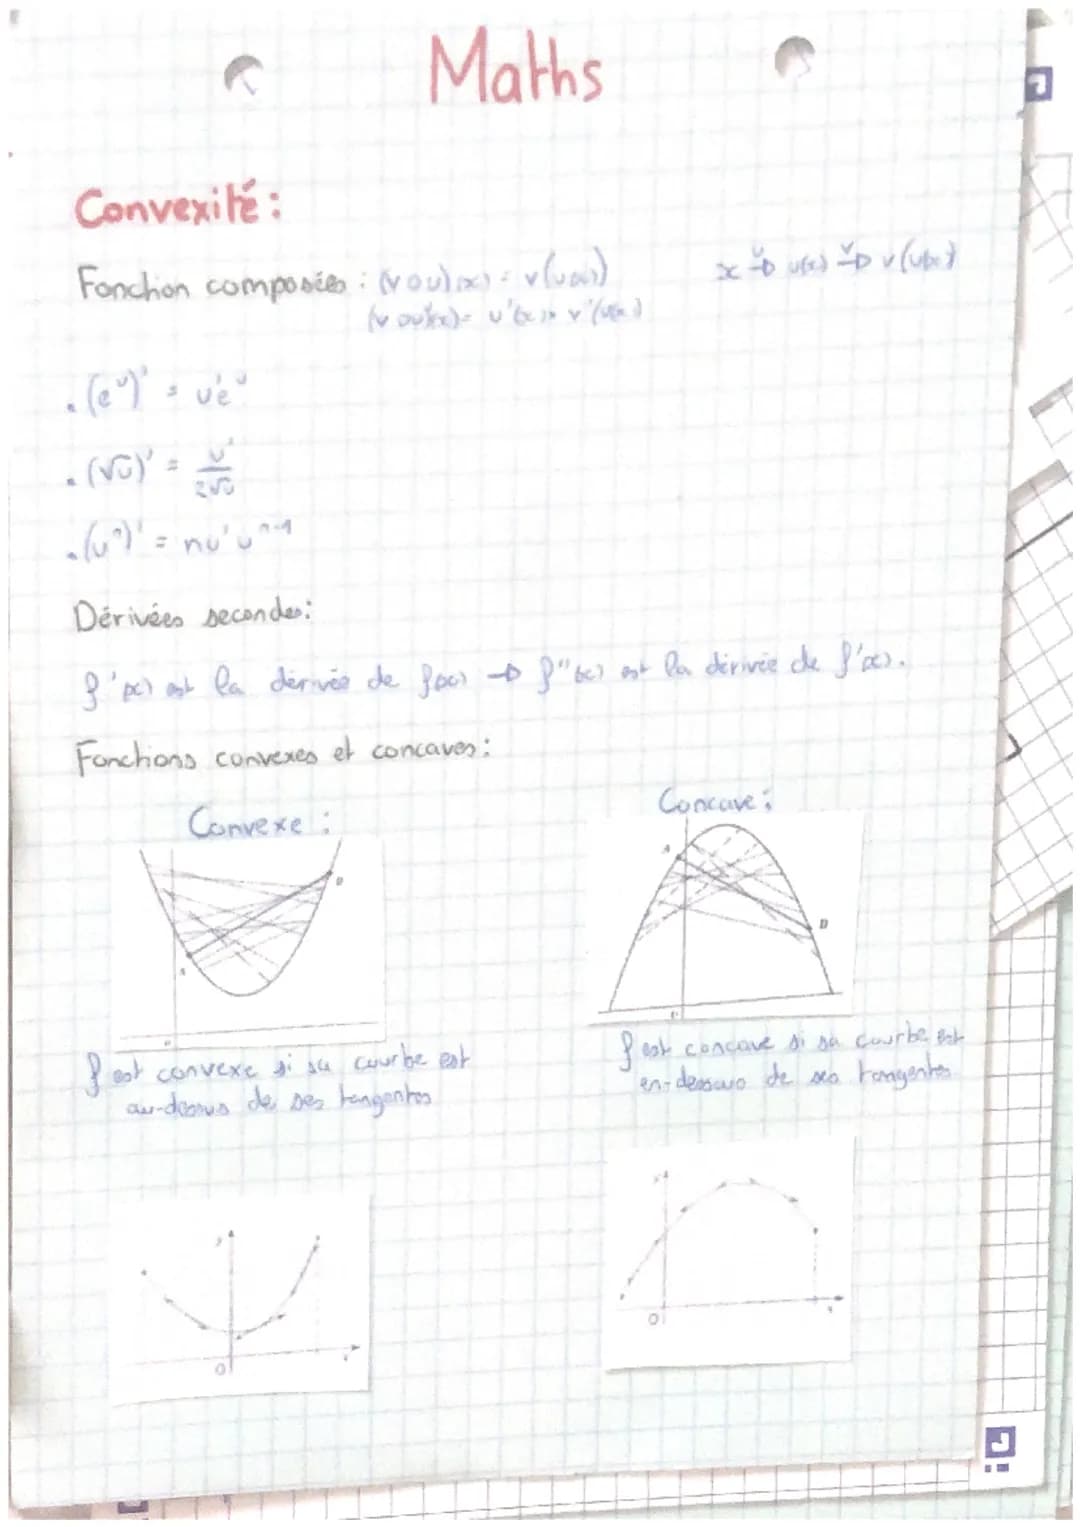 Maths
Convexité :
Fonction composées : (v o u)(x) = v(u(x)) x →ᵘ u(x) →ᵛ v(u(x))
(v o u)'(x) = u'(x) × v'(u(x))
• (eᵘ)' = u'eᵘ
• (√u)' = u'/2√u
• (uⁿ)' = nu'uⁿ⁻¹
Dérivées secondes :
f'(x) est la dérivée de f(x) → f''(x) est la dérivée de f'(x).
Fonctions convexes et concaves :
Convexe : Concave :
A B
A B
f est convexe si sa courbe est
au-dessus de ses tangentes
f est concave si sa courbe est
en-dessous de ses tangentes
y
O
y
O